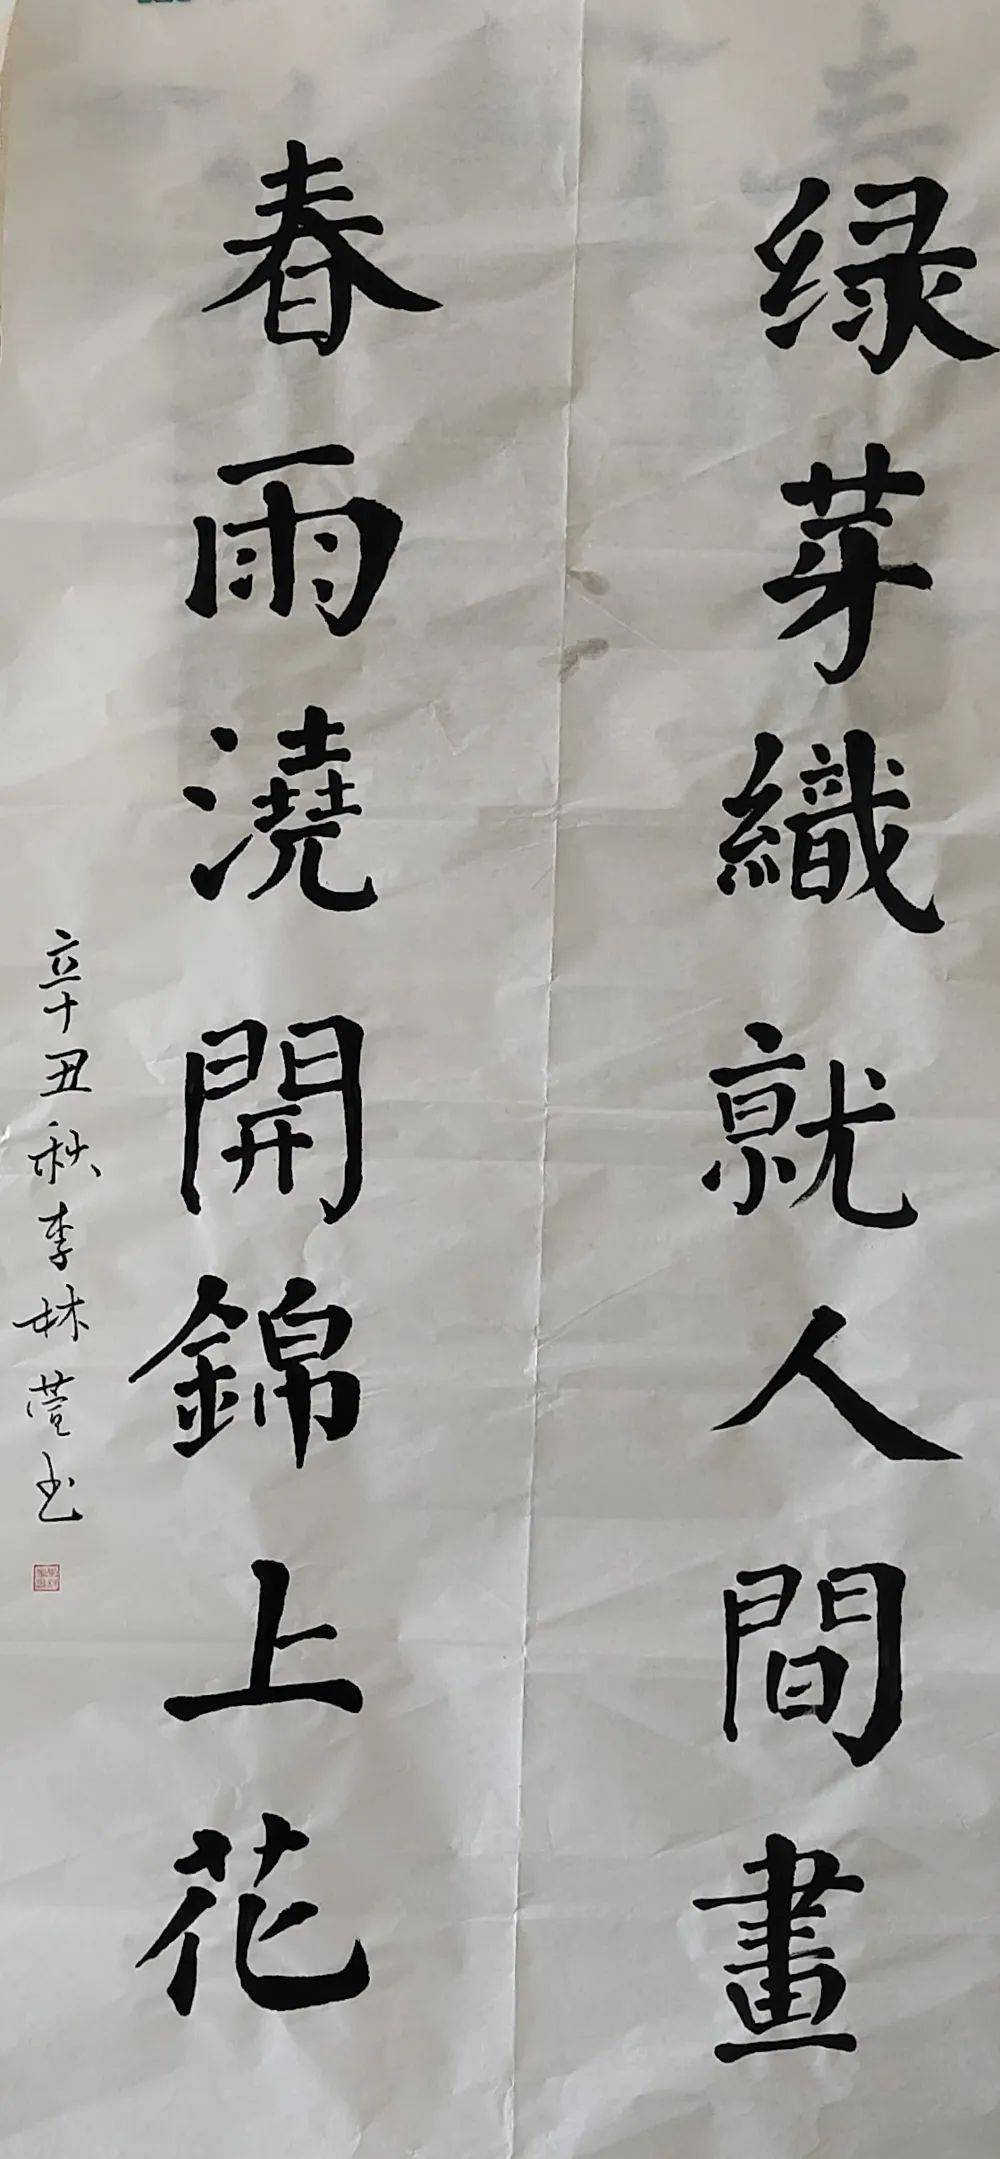 绿芽織就人間畫
春雨澆開錦上花
辛丑秋李林萱书